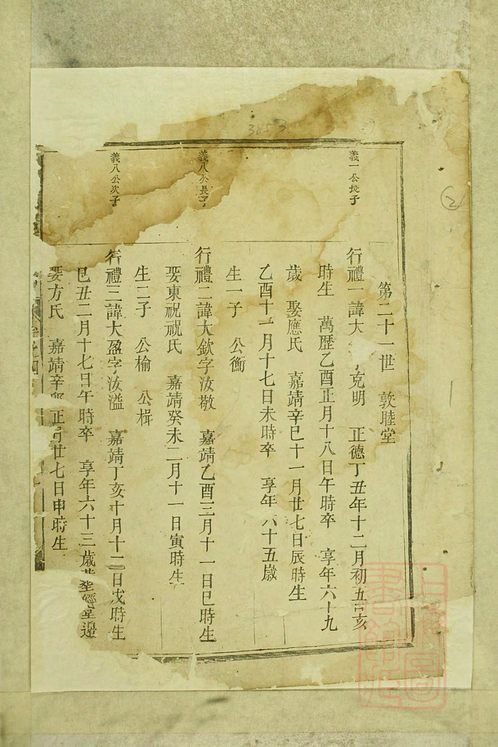 第二十一世 敦睦堂
義一公長子
行禮一諱大 克明 正德丁丑年十二月初五 亥
時生 萬歷乙酉正月十八日午時卒 享年六十九
歲 娶應氏 嘉靖辛巳十一月廿七日辰時生
乙酉十二月十七日未時卒 享年六十五歲
生一子 公衡
義八公長子
行禮二諱大欽字汝敬 嘉靖乙酉三月十一日巳時生
娶東祝祝氏 嘉靖癸未二月十一日寅時生
生二子 公楡 公楫
義八公次子
行禮三諱大盈字汝溢 嘉靖丁亥十月十二日戌時生
巳丑二月十七日午時卒 享年六十三歲 堂邊
娶方氏 嘉靖辛 正月廿七日申時生
3053
2